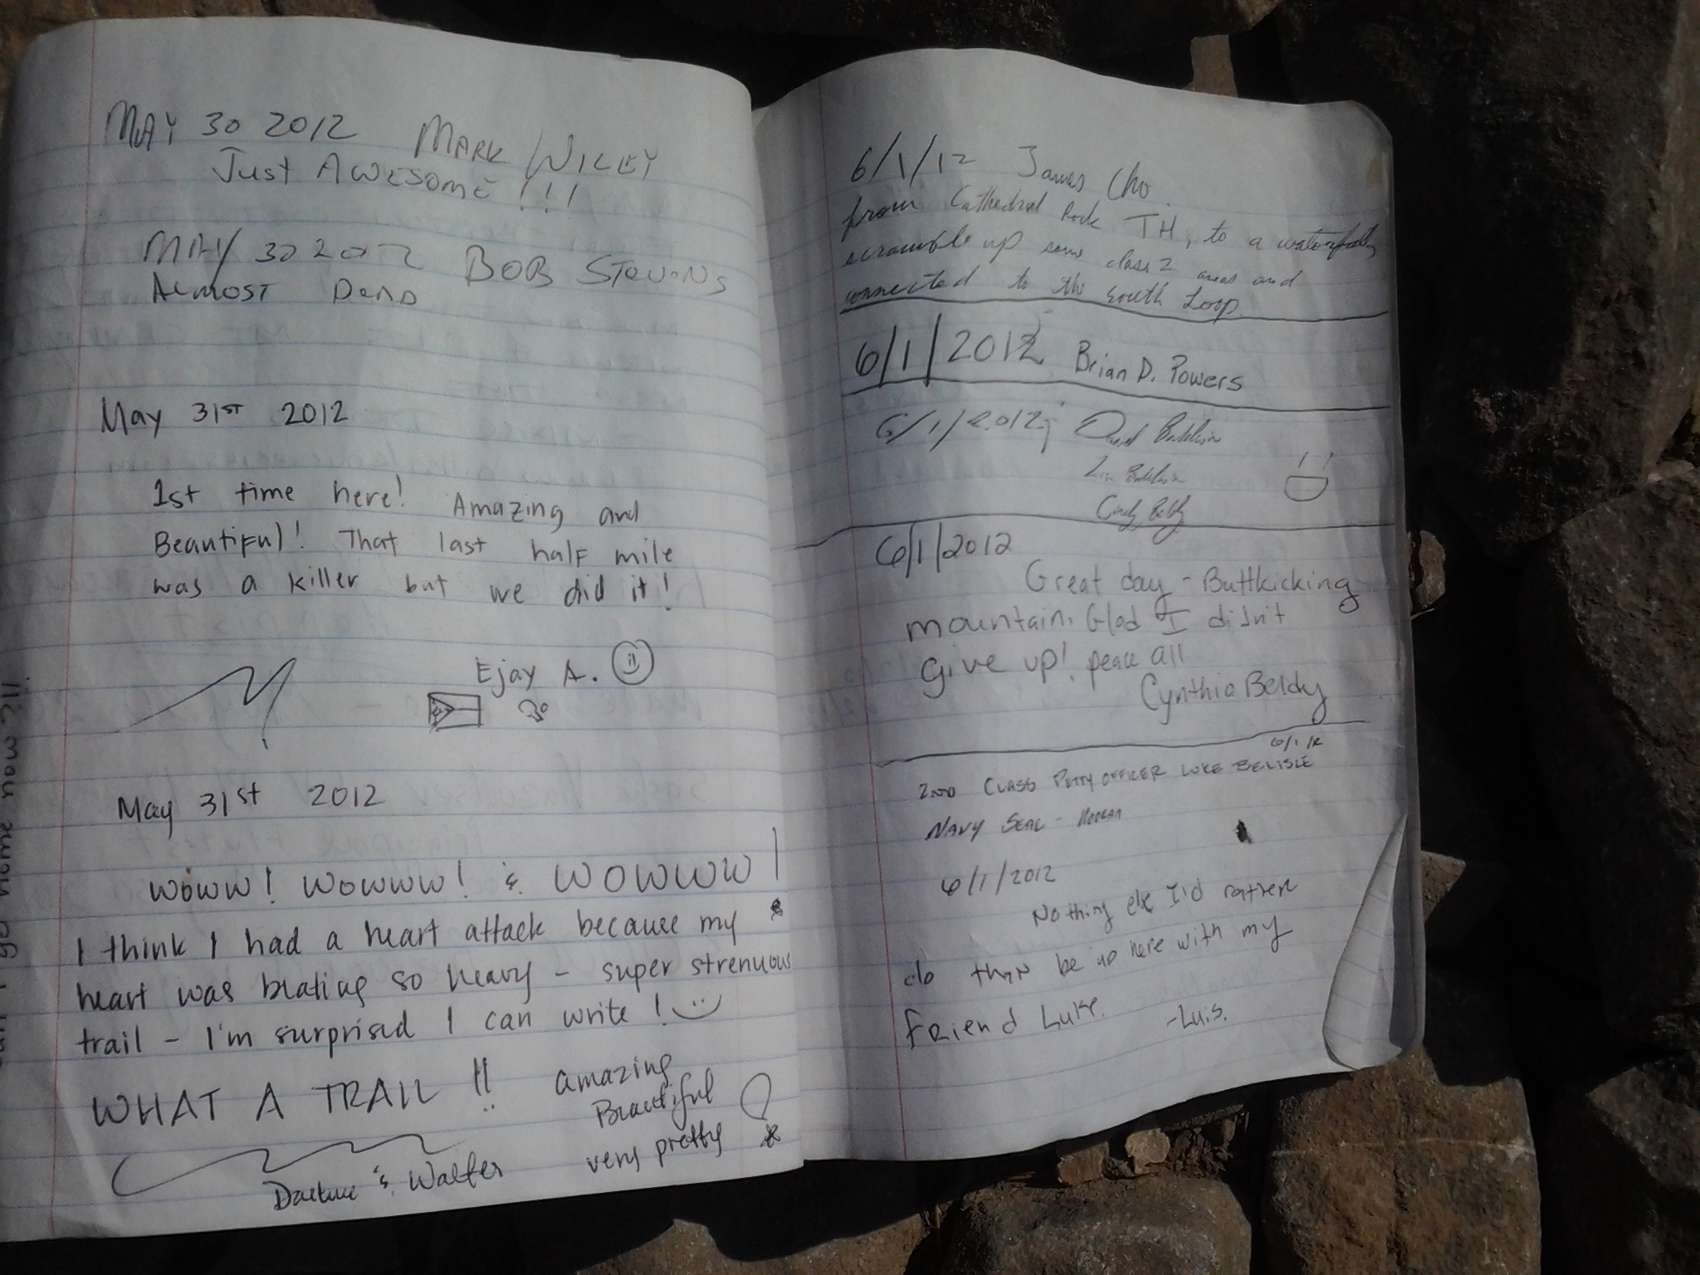 MAY 30 2012 MARK WILEY
Just AWESOME!!!
MAY 30 2012 BOB STEVENS
ALMOST DEAD
May 31st 2012
1st time here! Amazing and
Beautiful! That last half mile
was a killer but we did it!
Ejay A.
May 31st 2012
woww! wowww! & WOWWW!
I think I had a heart attack because my
heart was beating so heavy - super strenuous
trail - I'm surprised I can write!
WHAT A TRAIL!! amazing
Beautiful
very pretty
& Walter
6/1/12 James Cho.
from Cathedral Rock TH, to a waterfall,
scramble up some class 2 areas and
connected to the South Loop
6/1/2012 Brian D. Powers
6/1/2012; David
Cindy Beldy
6/1/2012
Great day - Buttkicking
mountain. Glad I didn't
give up! peace all
Cynthia Beldy
6/1/12
2ND CLASS PETTY OFFICER LUKE BELISLE
NAVY SEAL -
6/1/2012
Nothing else I'd rather
do than be up here with my
friend Luke. -Luis.